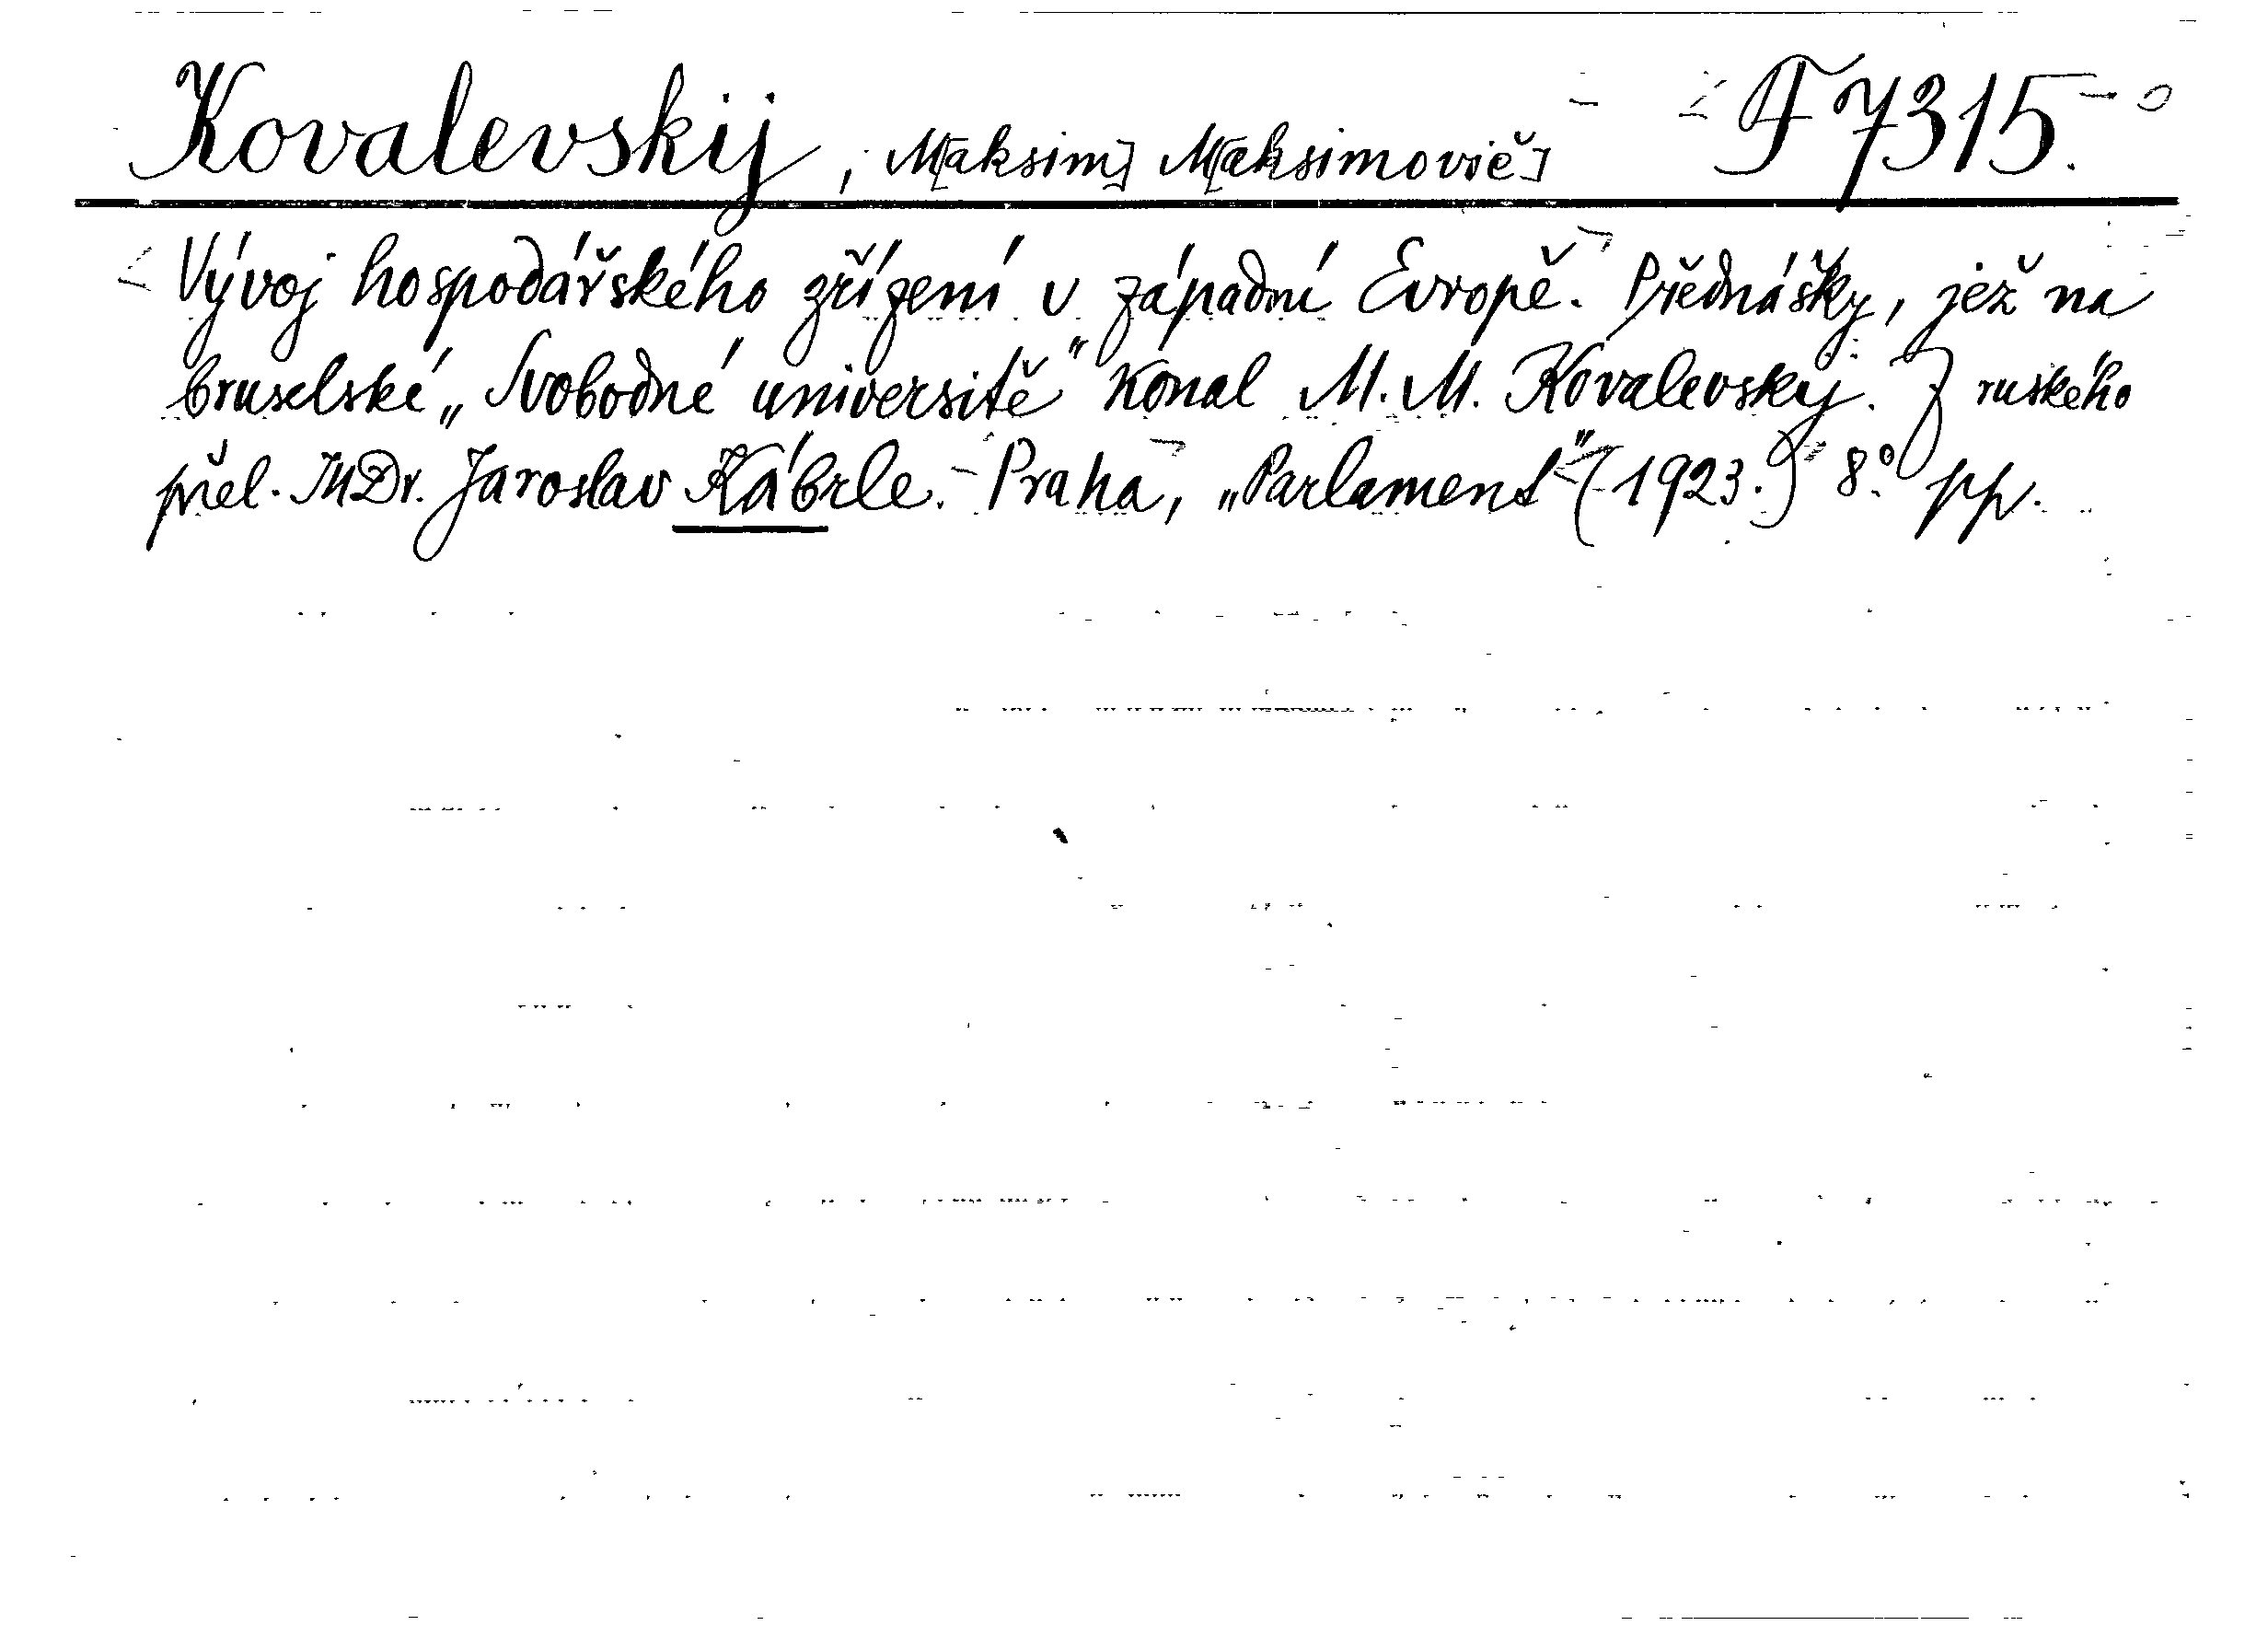 Kovalevskij, M[aksim] M[aksimovič] F 7315.
Vývoj hospodářského zřízení v západní Evropě. Přednášky, jež na
bruselské „Svobodné universitě" konal M. M. Kovalevskij. Z ruského
přel. MDr. Jaroslav Kábrle. - Praha, „Parlament" (1923.) 8° pp.